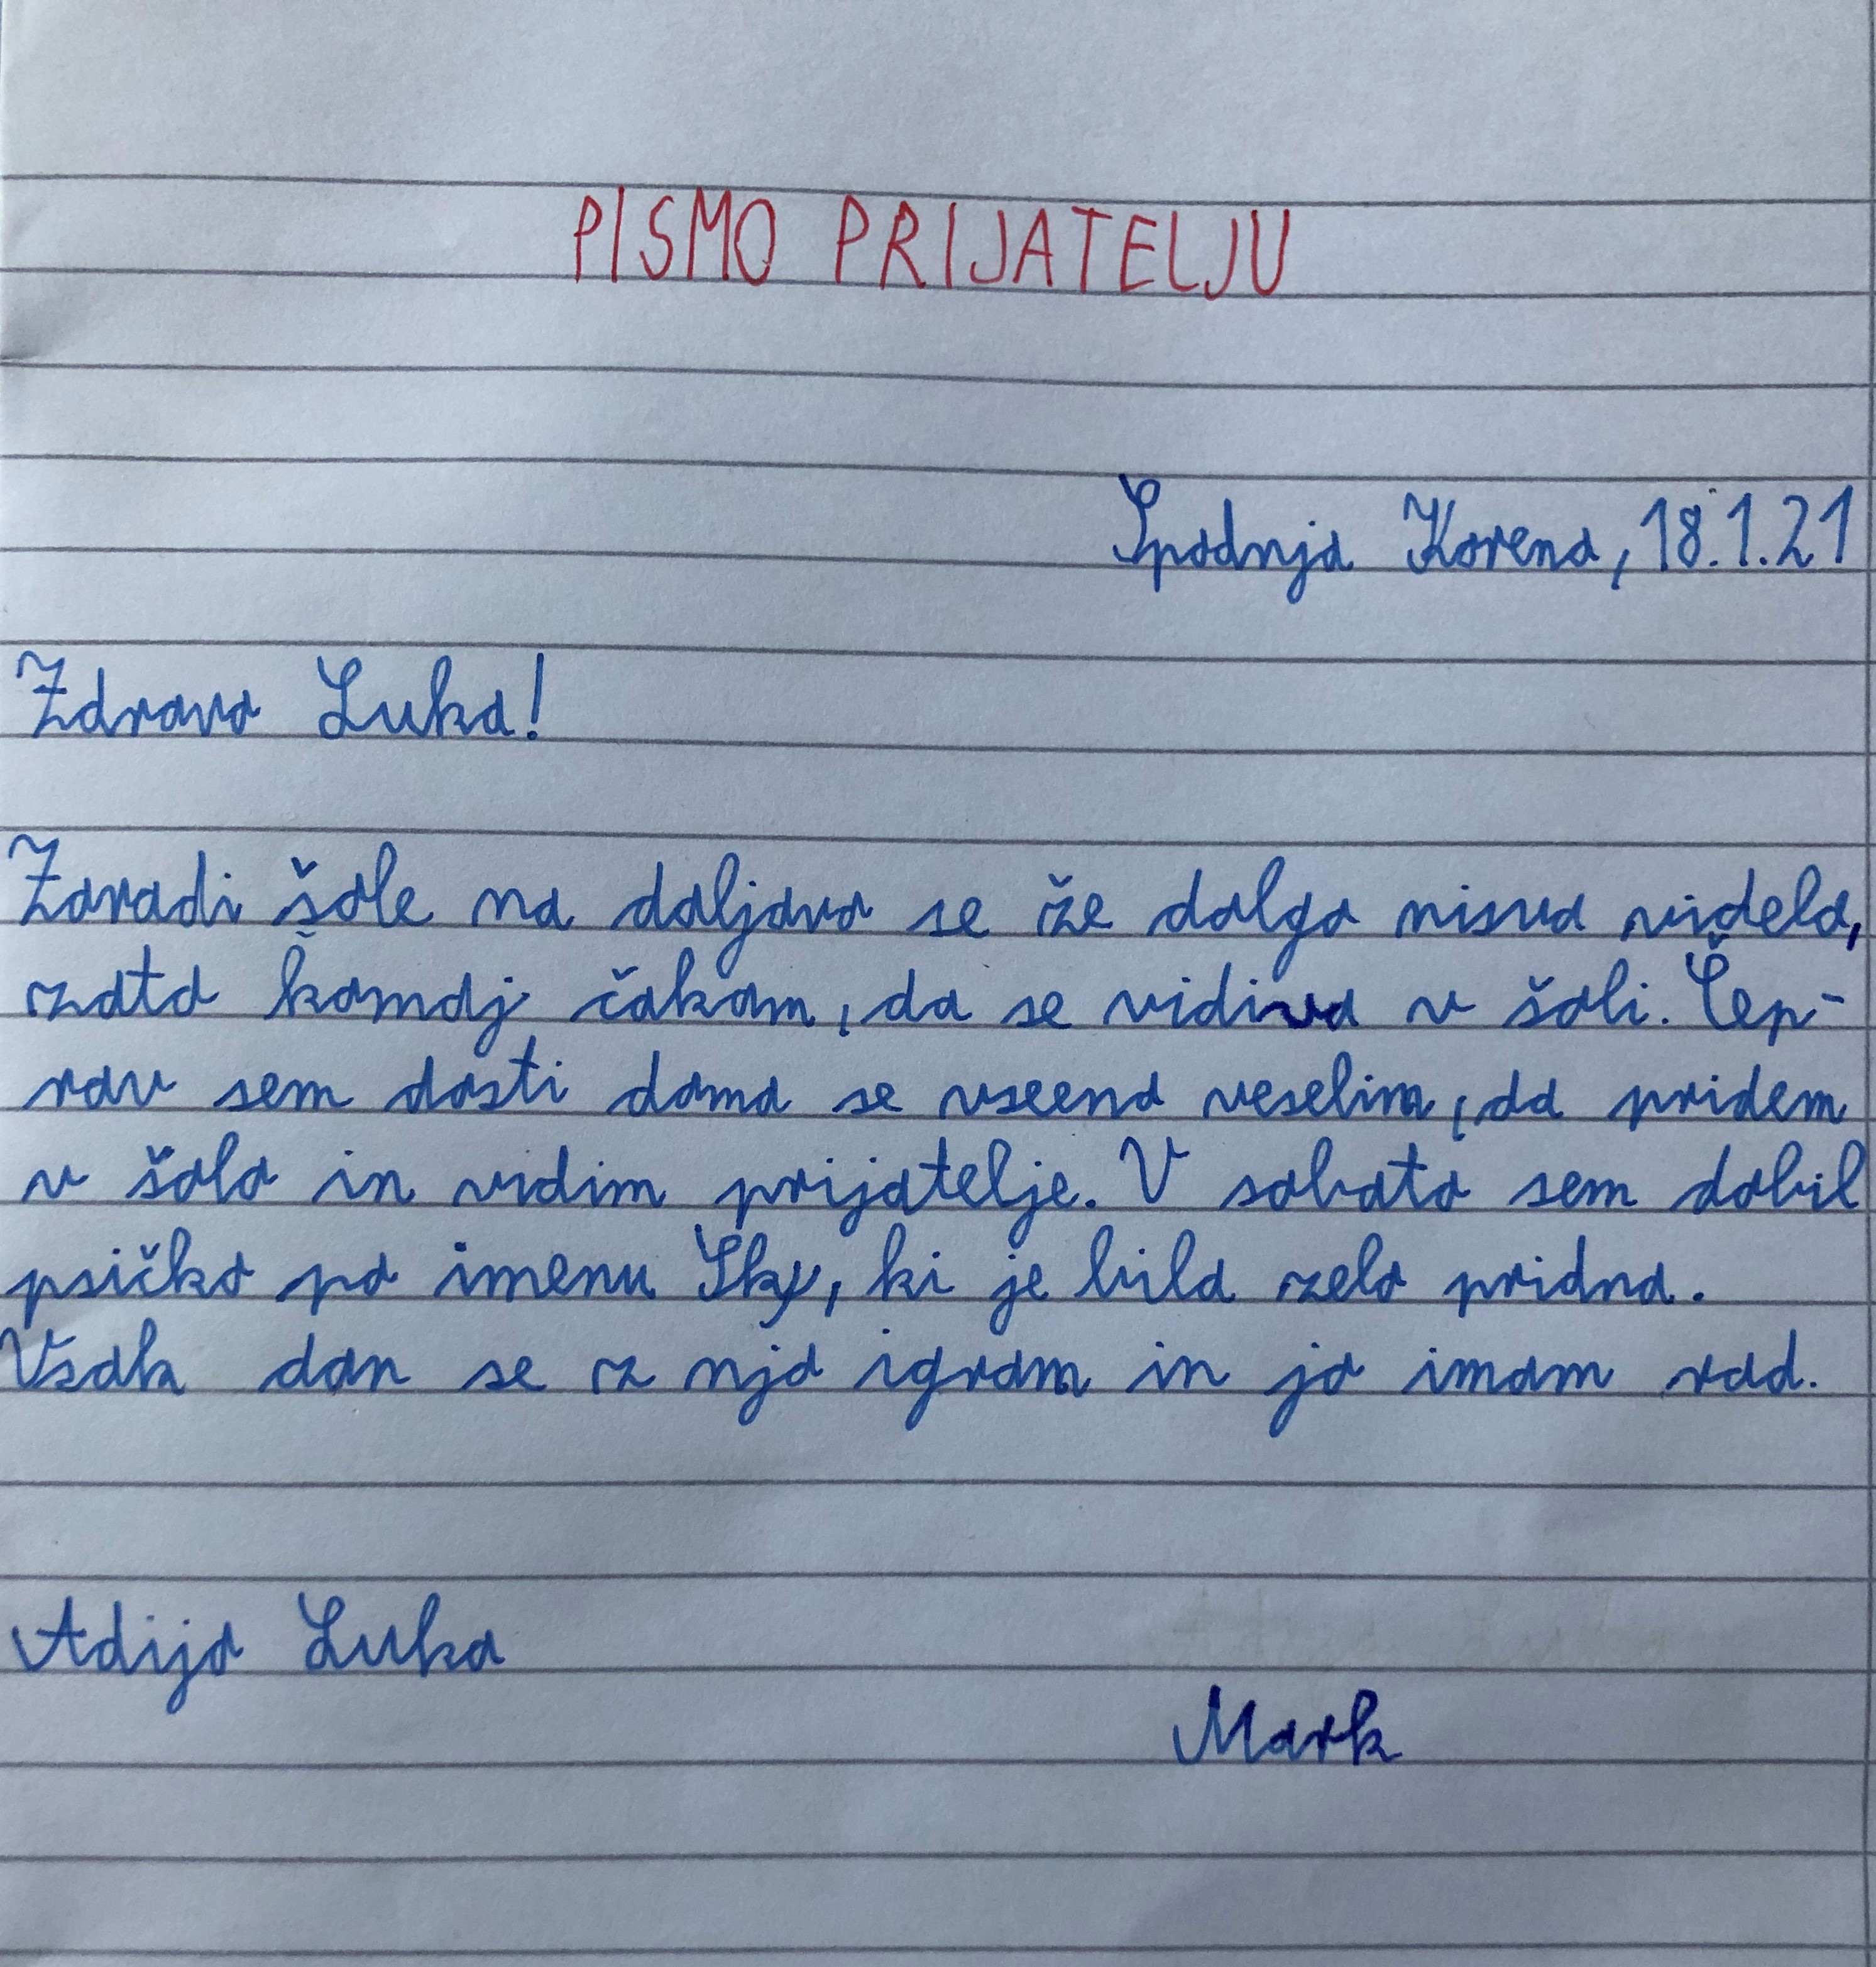 PISMO PRIJATELJU
Spodnja Korena, 18.1.21
Zdravo Luka!
Zaradi šole na daljavo se že dolgo nisva videla,
zato komaj čakam, da se vidiva v šoli. Čep-
rav sem dosti doma se vseeno veselim, da pridem
v šolo in vidim prijatelje. V soboto sem dobil
psičko po imenu Sky, ki je bila zelo pridna.
Vsak dan se z njo igram in jo imam rad.
Adijo Luka
Mark